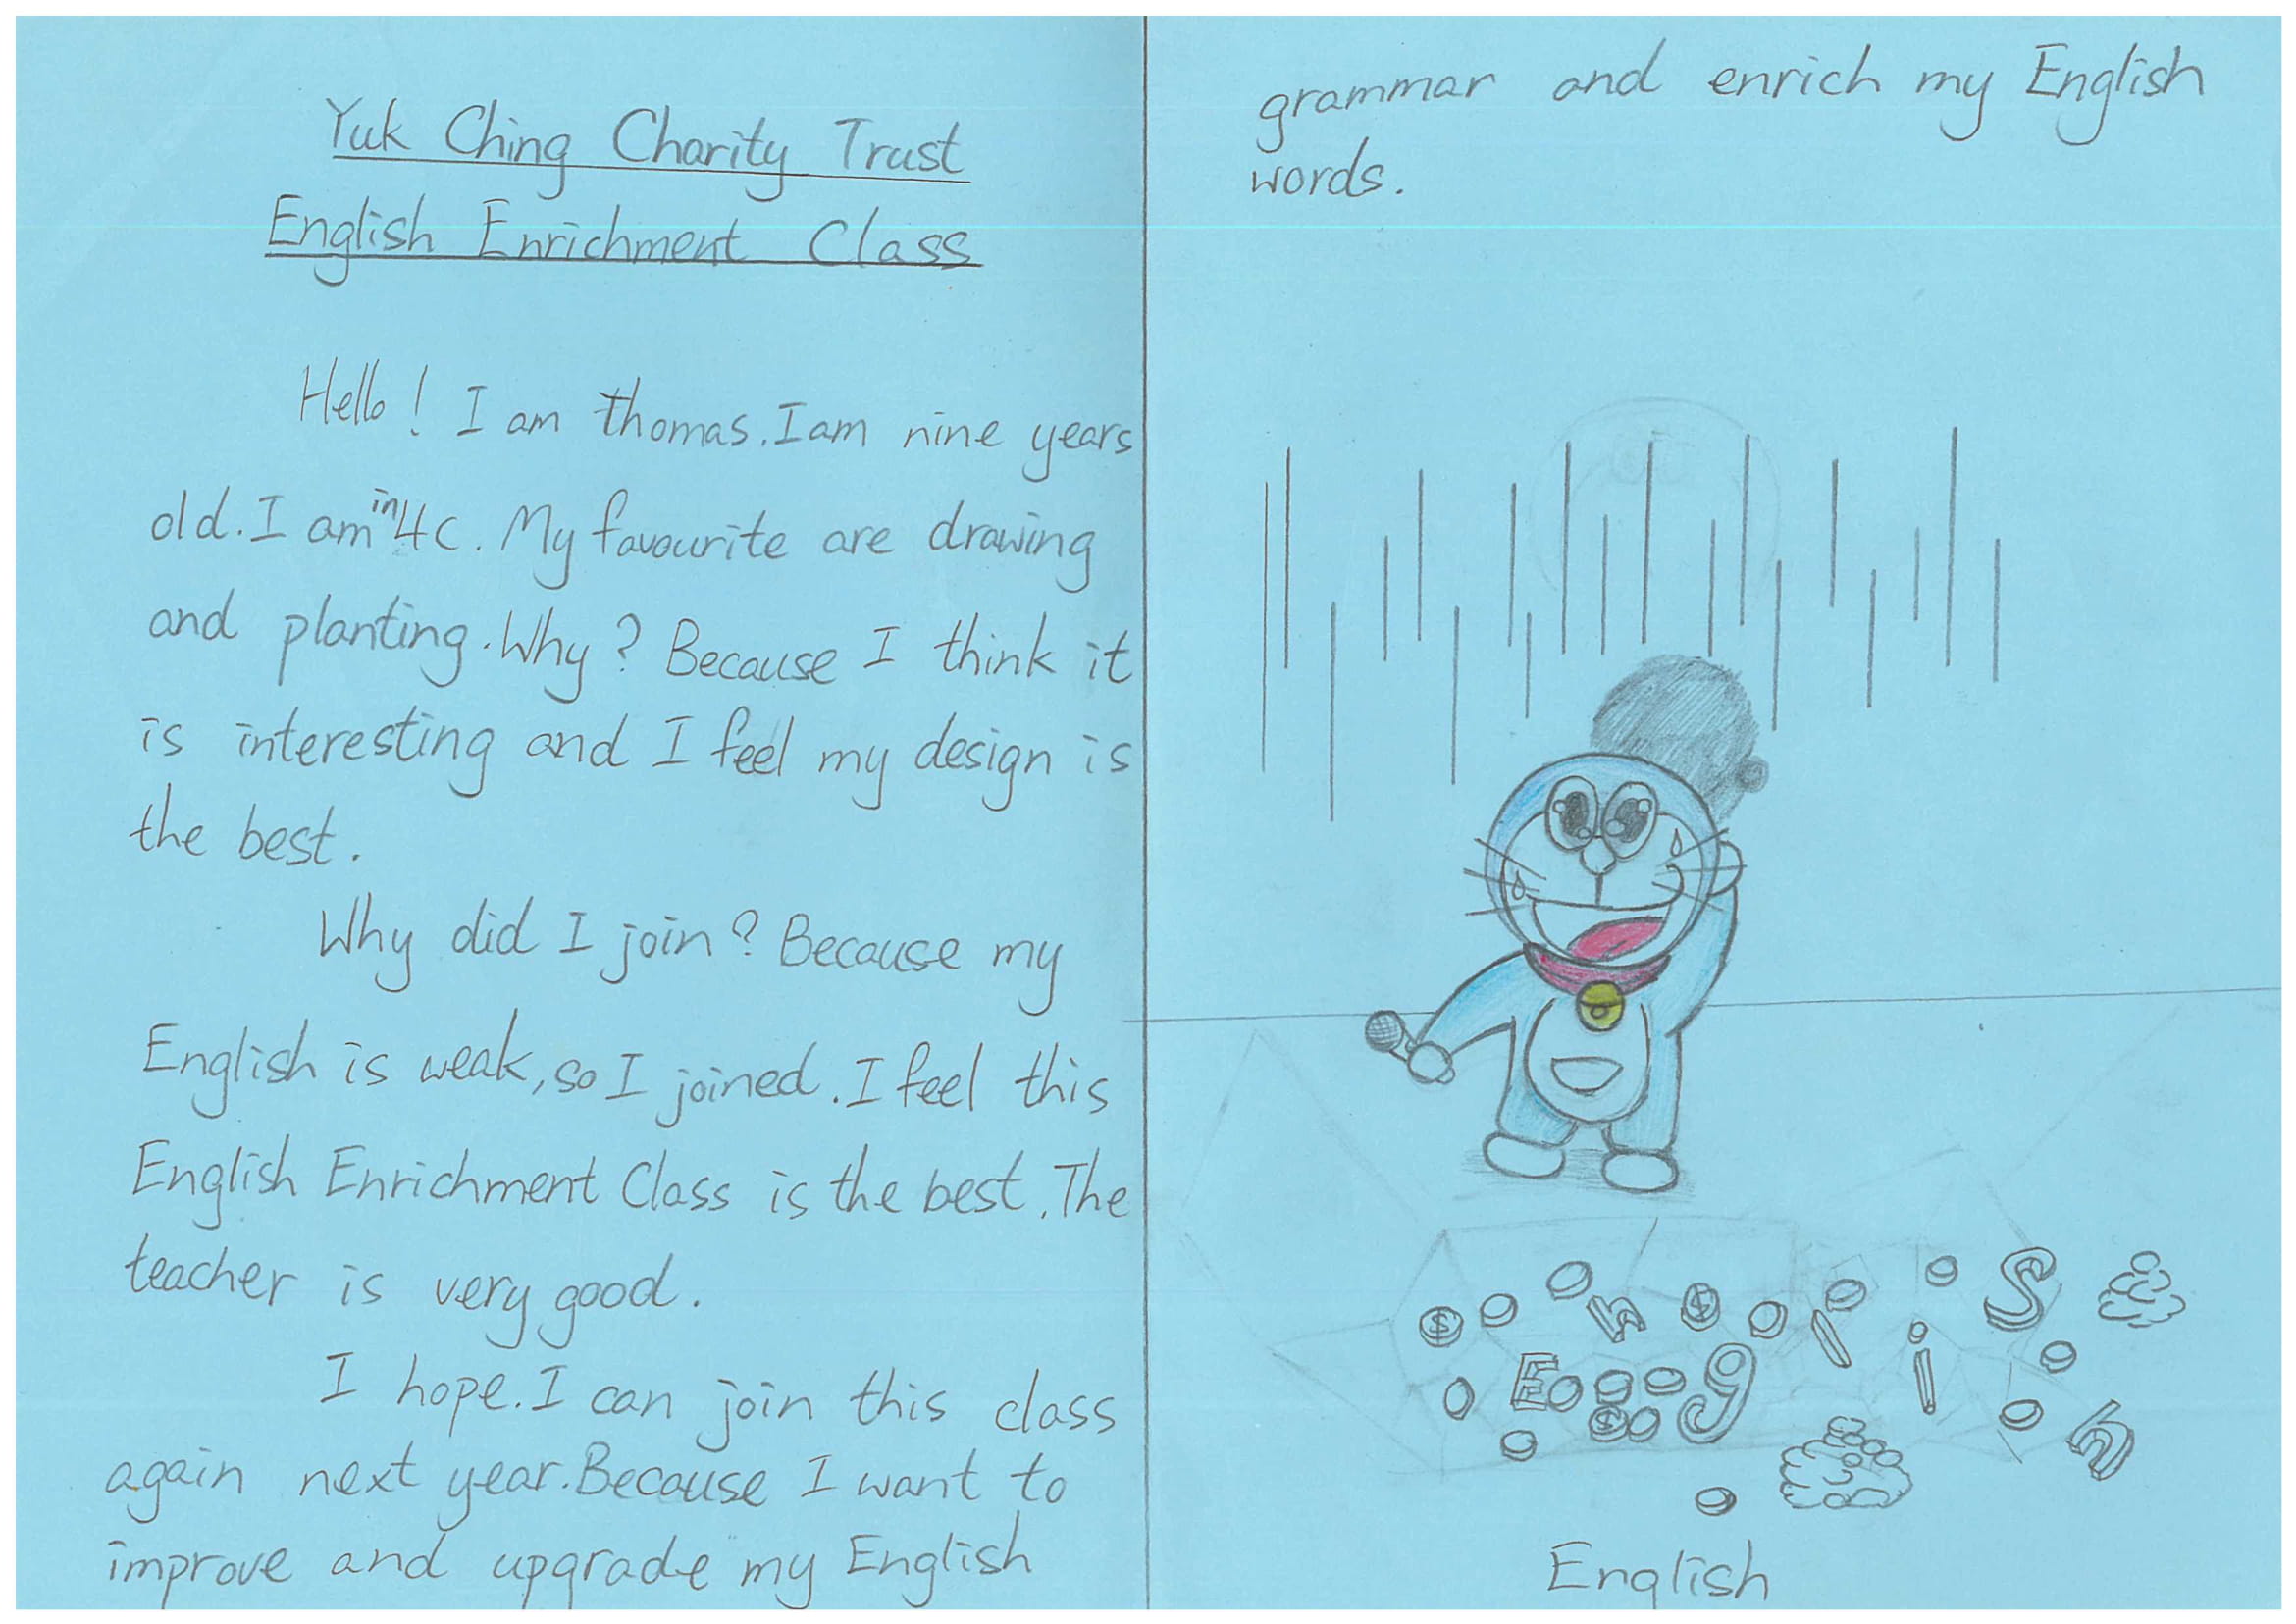 Yuk Ching Charity Trust
English Enrichment Class
Hello! I am thomas. I am nine years
old. I am in 4C. My favourite are drawing
and planting. Why? Because I think it
is interesting and I feel my design is
the best.
Why did I join? Because my
English is weak, so I joined. I feel this
English Enrichment Class is the best. The
teacher is very good.
I hope. I can join this class
again next year. Because I want to
improve and upgrade my English
grammar and enrich my English
words.
E n g l i S h
English